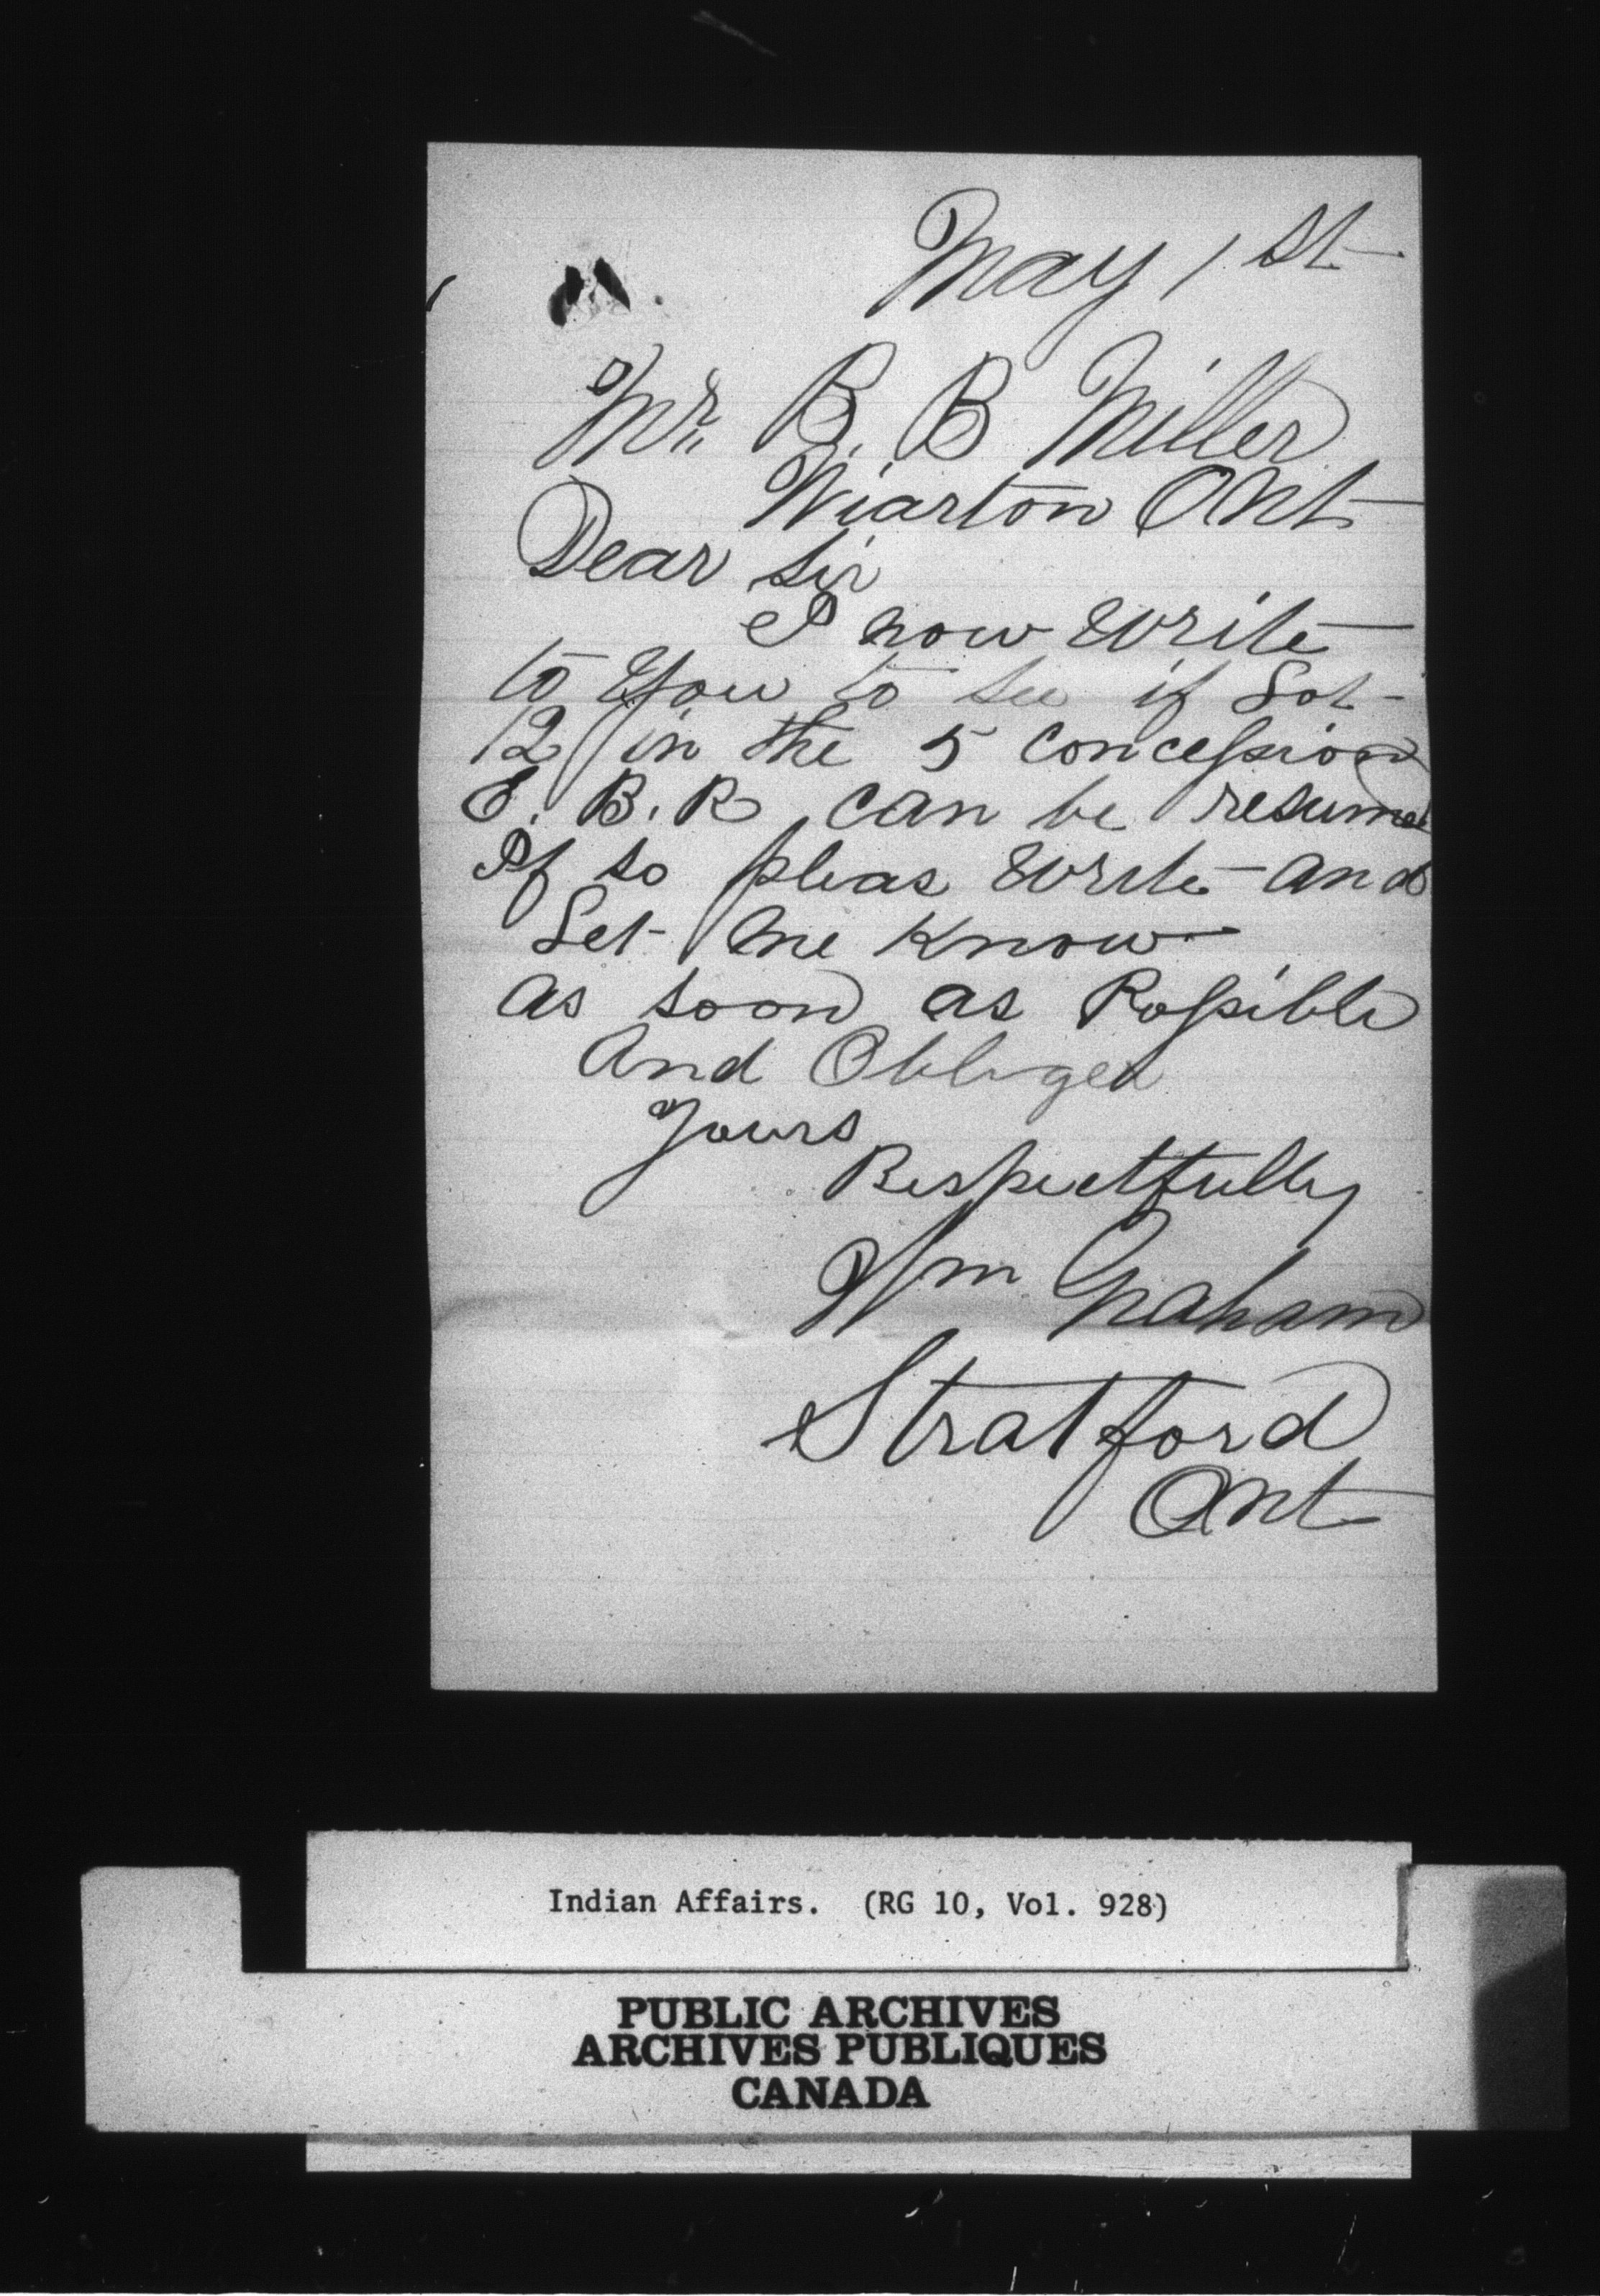 May 1 st
Mr. B. B Miller
Wiarton Ont
Dear Sir
I now write
to you to see if Lot
12 in the 5 concession
E. B. R can be resumed
If so pleas write and
Let me know
as soon as Possible
And Obliged
yours
Respectfully
Wm Graham
Stratford
Ont
Indian Affairs. (RG 10, Vol. 928)
PUBLIC ARCHIVES
ARCHIVES PUBLIQUES
CANADA